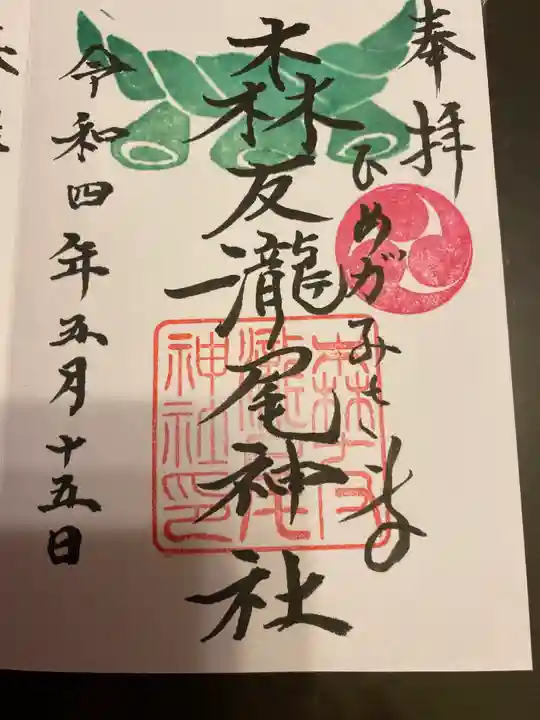 奉拝
ひめがみさま
森友瀧尾神社
令和四年五月十五日
神社印